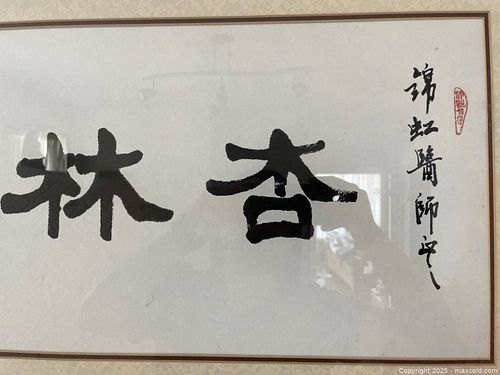 錦虹醫師正之
杏林
Copyright © 2025 - maxsold.com